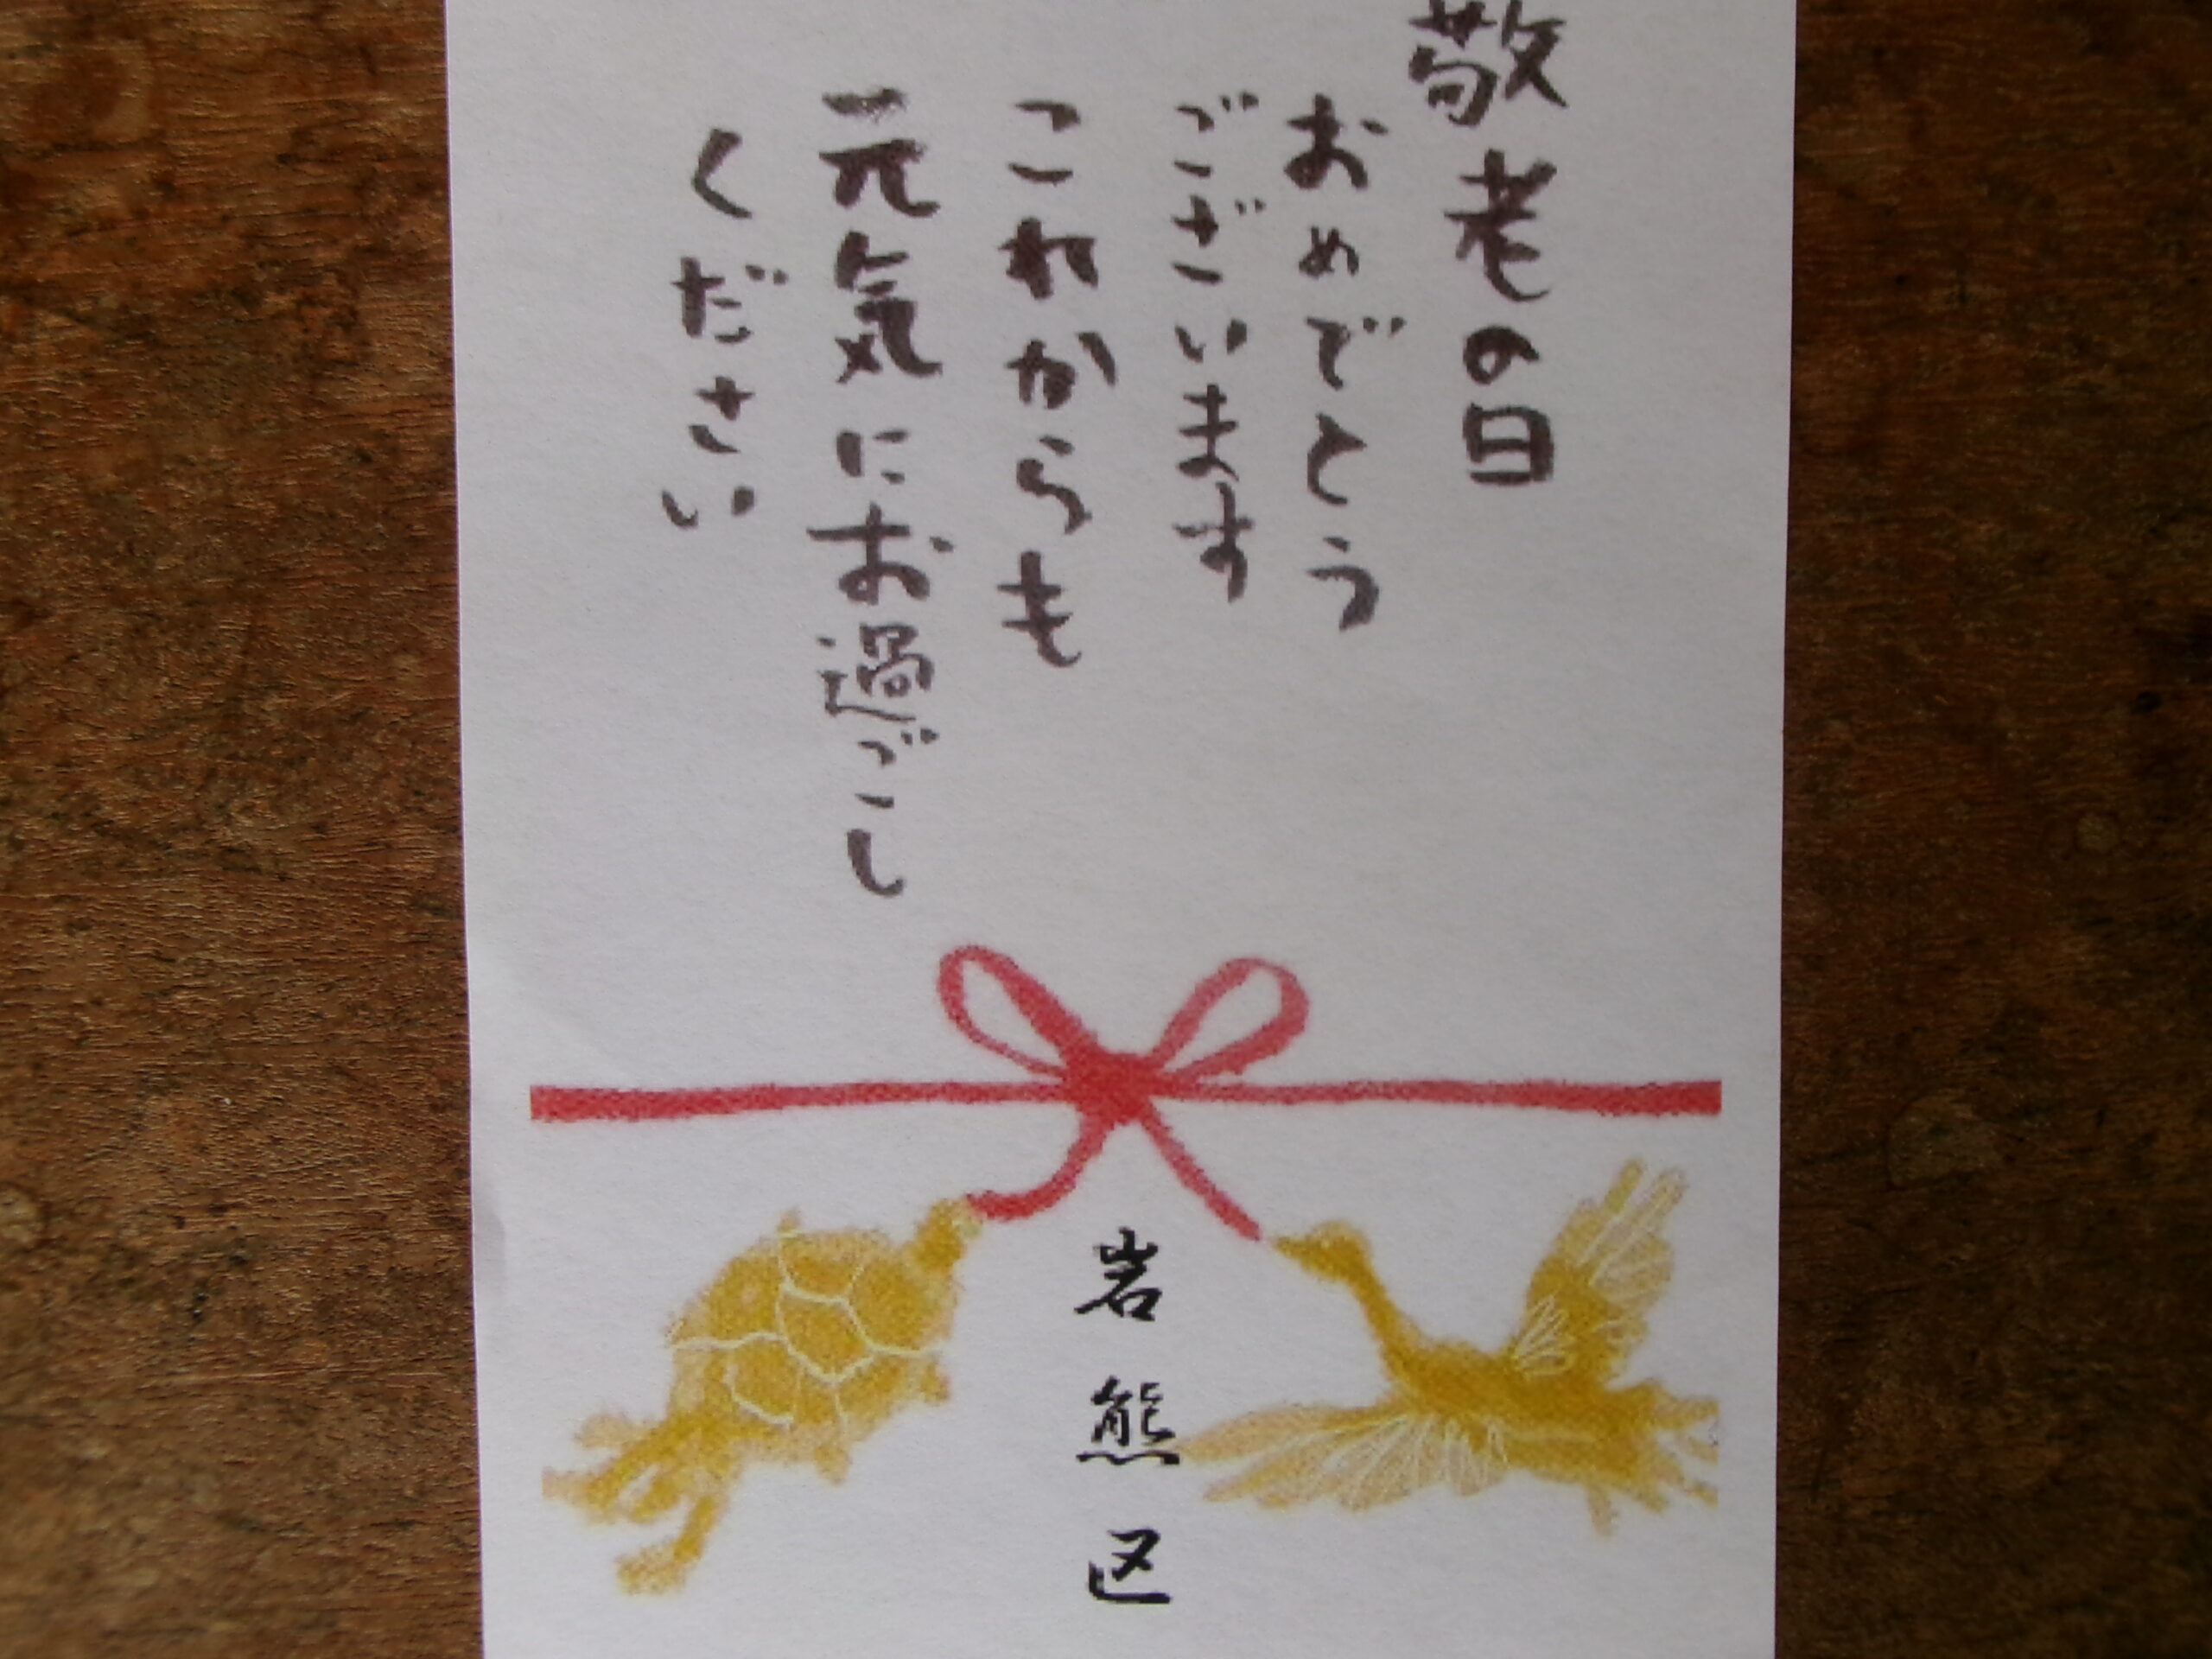 敬老の日
おめでとう
ございます
これからも
元気にお過ごし
ください
岩熊区